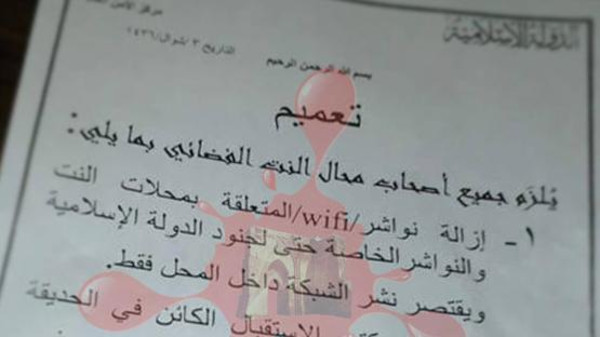 الدولة الإسلامية
مركز الأمن
التاريخ ٣ /شوال/١٤٣٦
بسم الله الرحمن الرحيم
تعميم
يُلزم جميع أصحاب محال النت الفضائي بما يلي:
١- إزالة نواشر/wifi/المتعلقة بمحلات النت
والنواشر الخاصة حتى لجنود الدولة الإسلامية
ويقتصر نشر الشبكة داخل المحل فقط.
الإستقبال الكائن في الحديقة